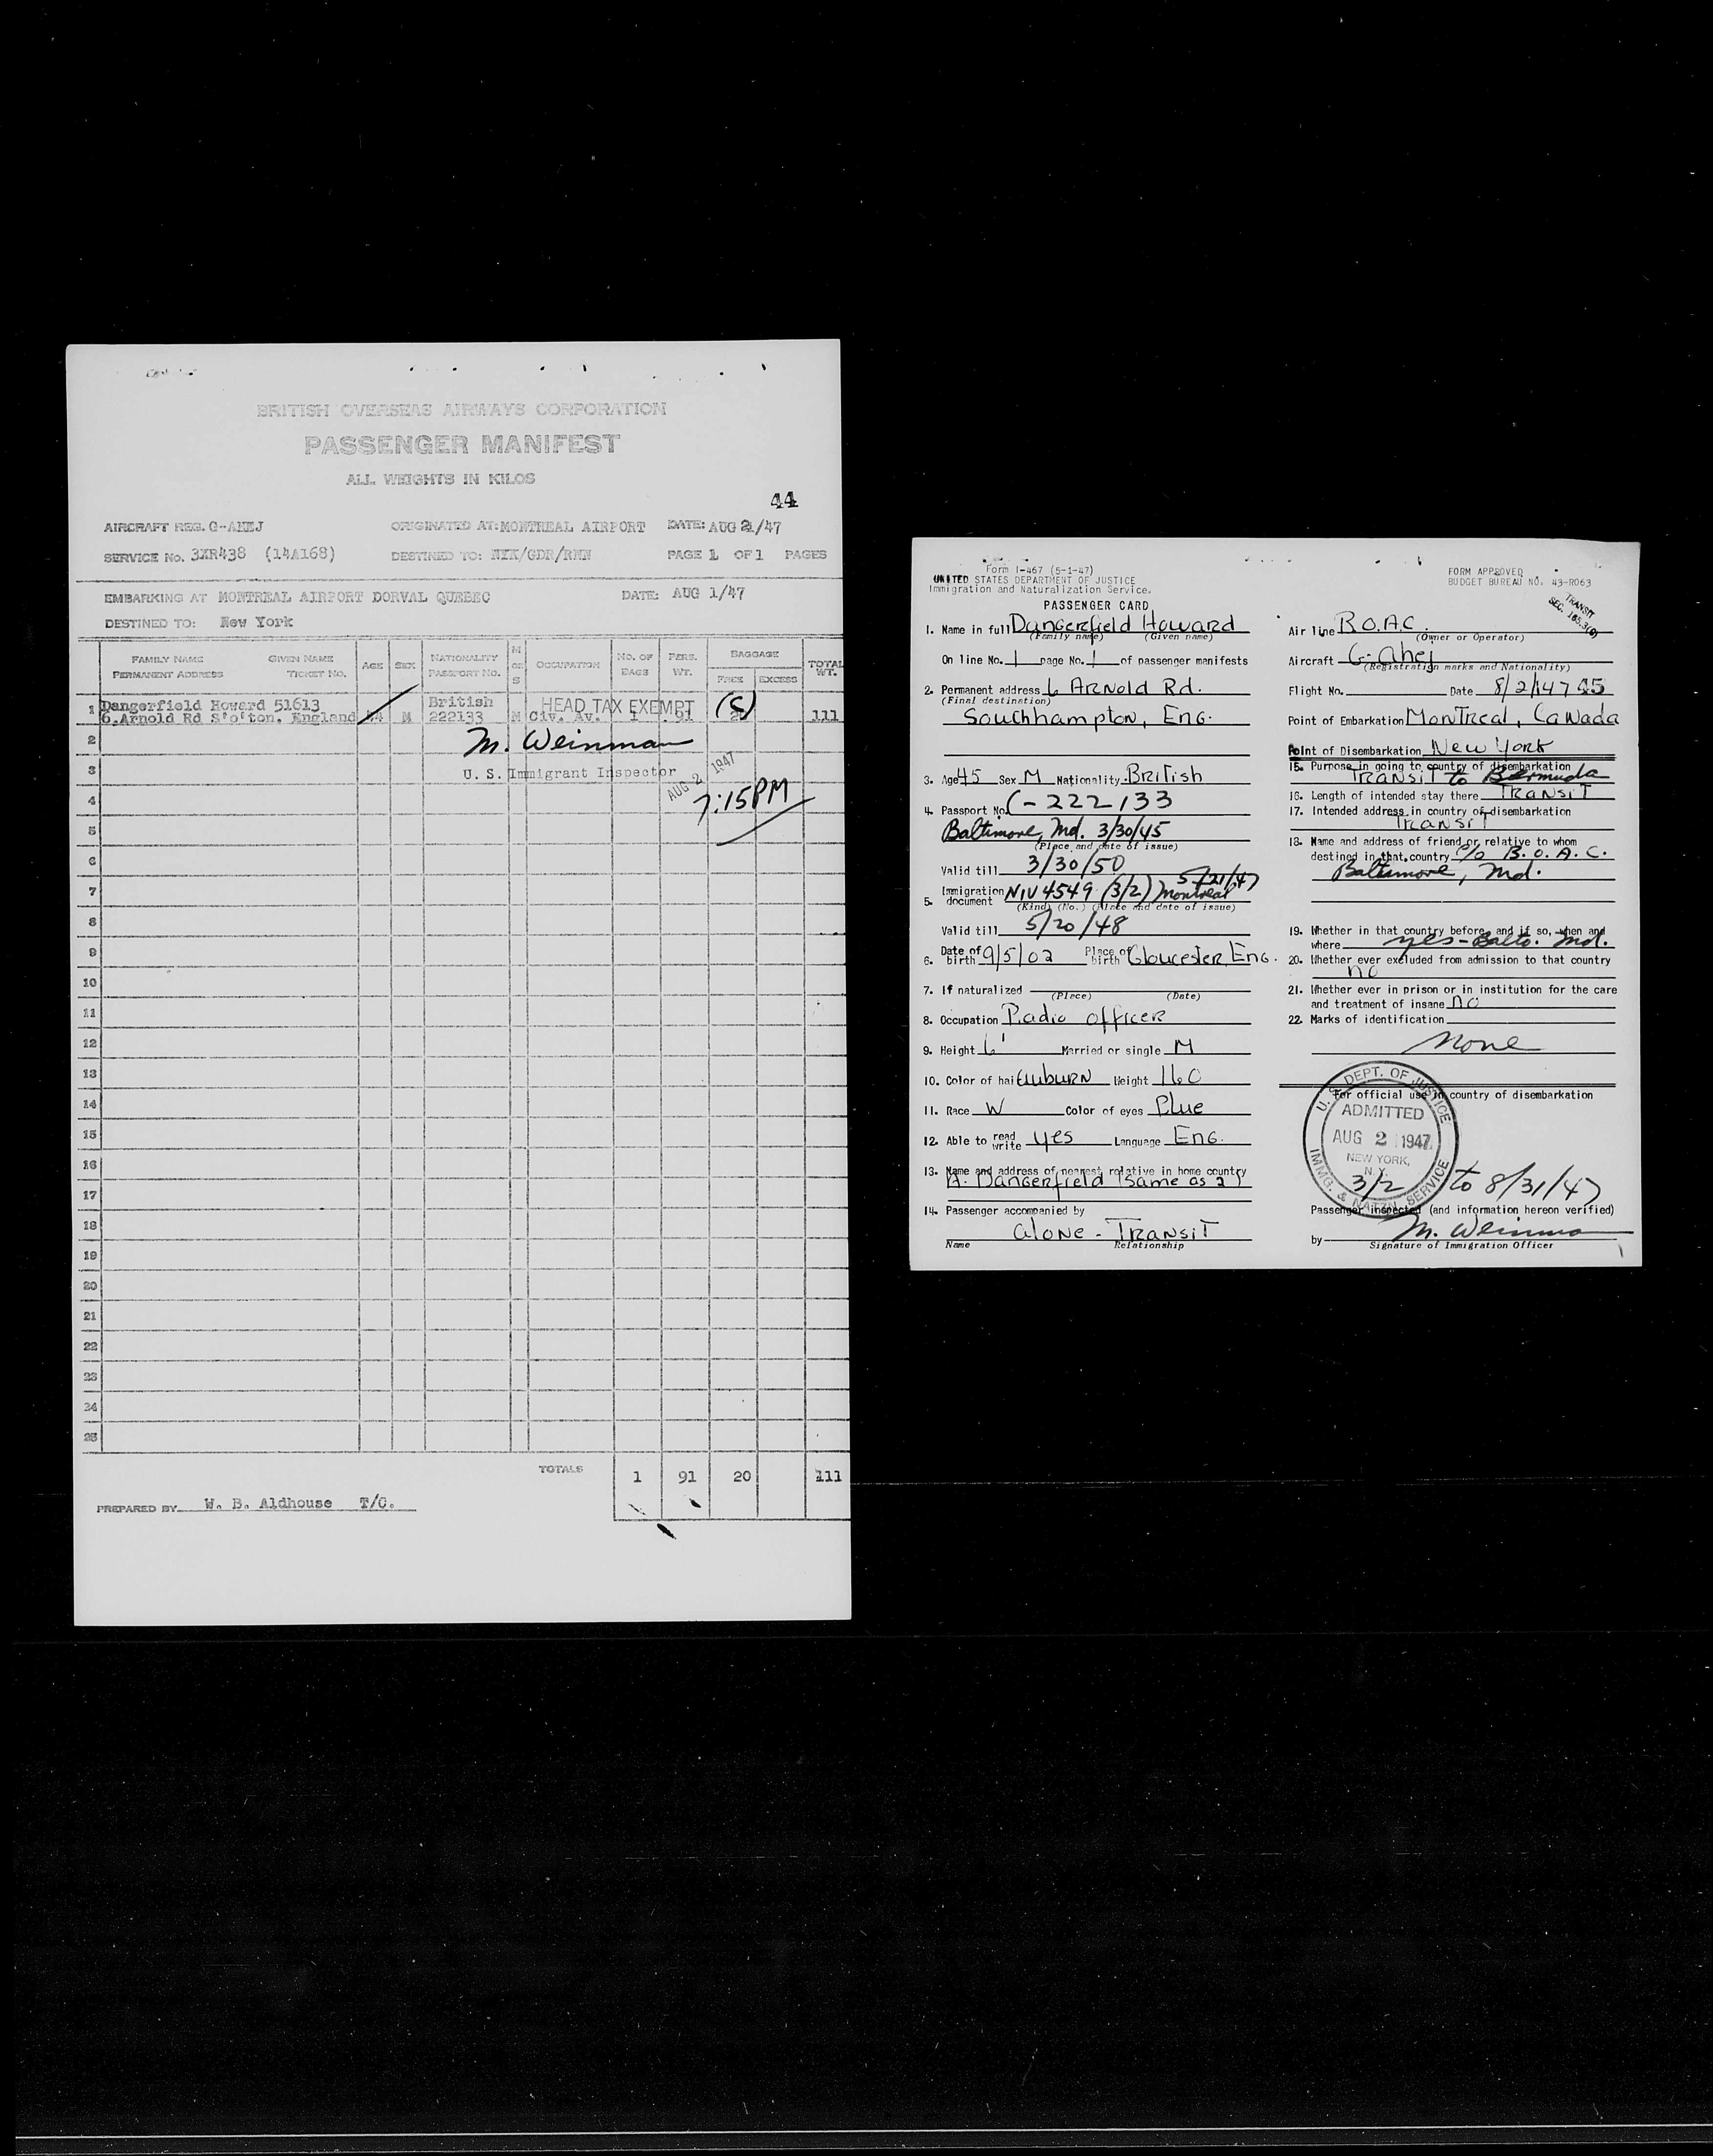 BRITISH OVERSEAS AIRWAYS CORPORATION
PASSENGER MANIFEST
ALL WEIGHTS IN KILOS
44
AIRCRAFT REG. G-AHEJ ORIGINATED AT: MONTREAL AIRPORT DATE: AUG 2/47
SERVICE No. 3XR438 (14A168) DESTINED TO: NYK/GDR/RNN PAGE 1 OF 1 PAGES
EMBARKING AT MONTREAL AIRPORT DORVAL QUEBEC DATE: AUG 1/47
DESTINED TO: New York
FAMILY NAME GIVEN NAME AGE SEX NATIONALITY M or S OCCUPATION NO. OF BAGS PERS. WT. BAGGAGE TOTAL WT.
PERMANENT ADDRESS TICKET NO. PASSPORT NO. FREE EXCESS
1 Dangerfield Howard 51613 British HEAD TAX EXEMPT (C)
6.Arnold Rd S'o'ton. England 44 M 222133 M Civ. Av. 1 91 20 111
2 M. Weinman
3 U. S. Immigrant Inspector AUG 2 1947
4 7:15PM
5
6
7
8
9
10
11
12
13
14
15
16
17
18
19
20
21
22
23
24
25
TOTALS 1 91 20 111
PREPARED BY W. B. Aldhouse T/O.
Form I-467 (5-1-47)
UNITED STATES DEPARTMENT OF JUSTICE
Immigration and Naturalization Service.
PASSENGER CARD
1. Name in full Dangerfield Howard
(Family name) (Given name)
On line No. 1 page No. 1 of passenger manifests
2. Permanent address 6 Arnold Rd.
(Final destination)
Southhampton, Eng.
3. Age 45 Sex M Nationality British
4. Passport No. C-222133
Baltimore, Md. 3/30/45
(Place and date of issue)
Valid till 3/30/50
5. Immigration document NIV 4549 (3/2) Montreal 5/21/47
(Kind) (No.) (Place and date of issue)
Valid till 5/20/48
6. Date of birth 9/5/02 Place of birth Gloucester, Eng.
7. If naturalized
(Place) (Date)
8. Occupation Radio Officer
9. Height 6' Married or single M
10. Color of hair Auburn Weight 160
11. Race W Color of eyes Blue
12. Able to read write yes Language Eng.
13. Name and address of nearest relative in home country
A. Dangerfield (Same as 2)
14. Passenger accompanied by
Alone - Transit
Name Relationship
FORM APPROVED
BUDGET BUREAU NO. 43-R063
TRANSIT
SEC. 165.3(g)
Air line B.O.A.C.
(Owner or Operator)
Aircraft G-Ahej
(Registration marks and Nationality)
Flight No. Date 8/2/147 45
Point of Embarkation Montreal, Canada
Point of Disembarkation New York
15. Purpose in going to country of disembarkation
Transit to Bermuda
16. Length of intended stay there Transit
17. Intended address in country of disembarkation
Transit
18. Name and address of friend or relative to whom
destined in that country c/o B.O.A.C.
Baltimore, Md.
19. Whether in that country before, and if so, when and
where yes - Balto. Md.
20. Whether ever excluded from admission to that country
no
21. Whether ever in prison or in institution for the care
and treatment of insane no
22. Marks of identification
None
For official use in country of disembarkation
U. S. DEPT. OF JUSTICE
ADMITTED
AUG 2 1947
NEW YORK,
N.Y.
3/2 to 8/31/47
IMMG. & NATZN. SERVICE
Passenger inspected (and information hereon verified)
by M. Weinman
Signature of Immigration Officer